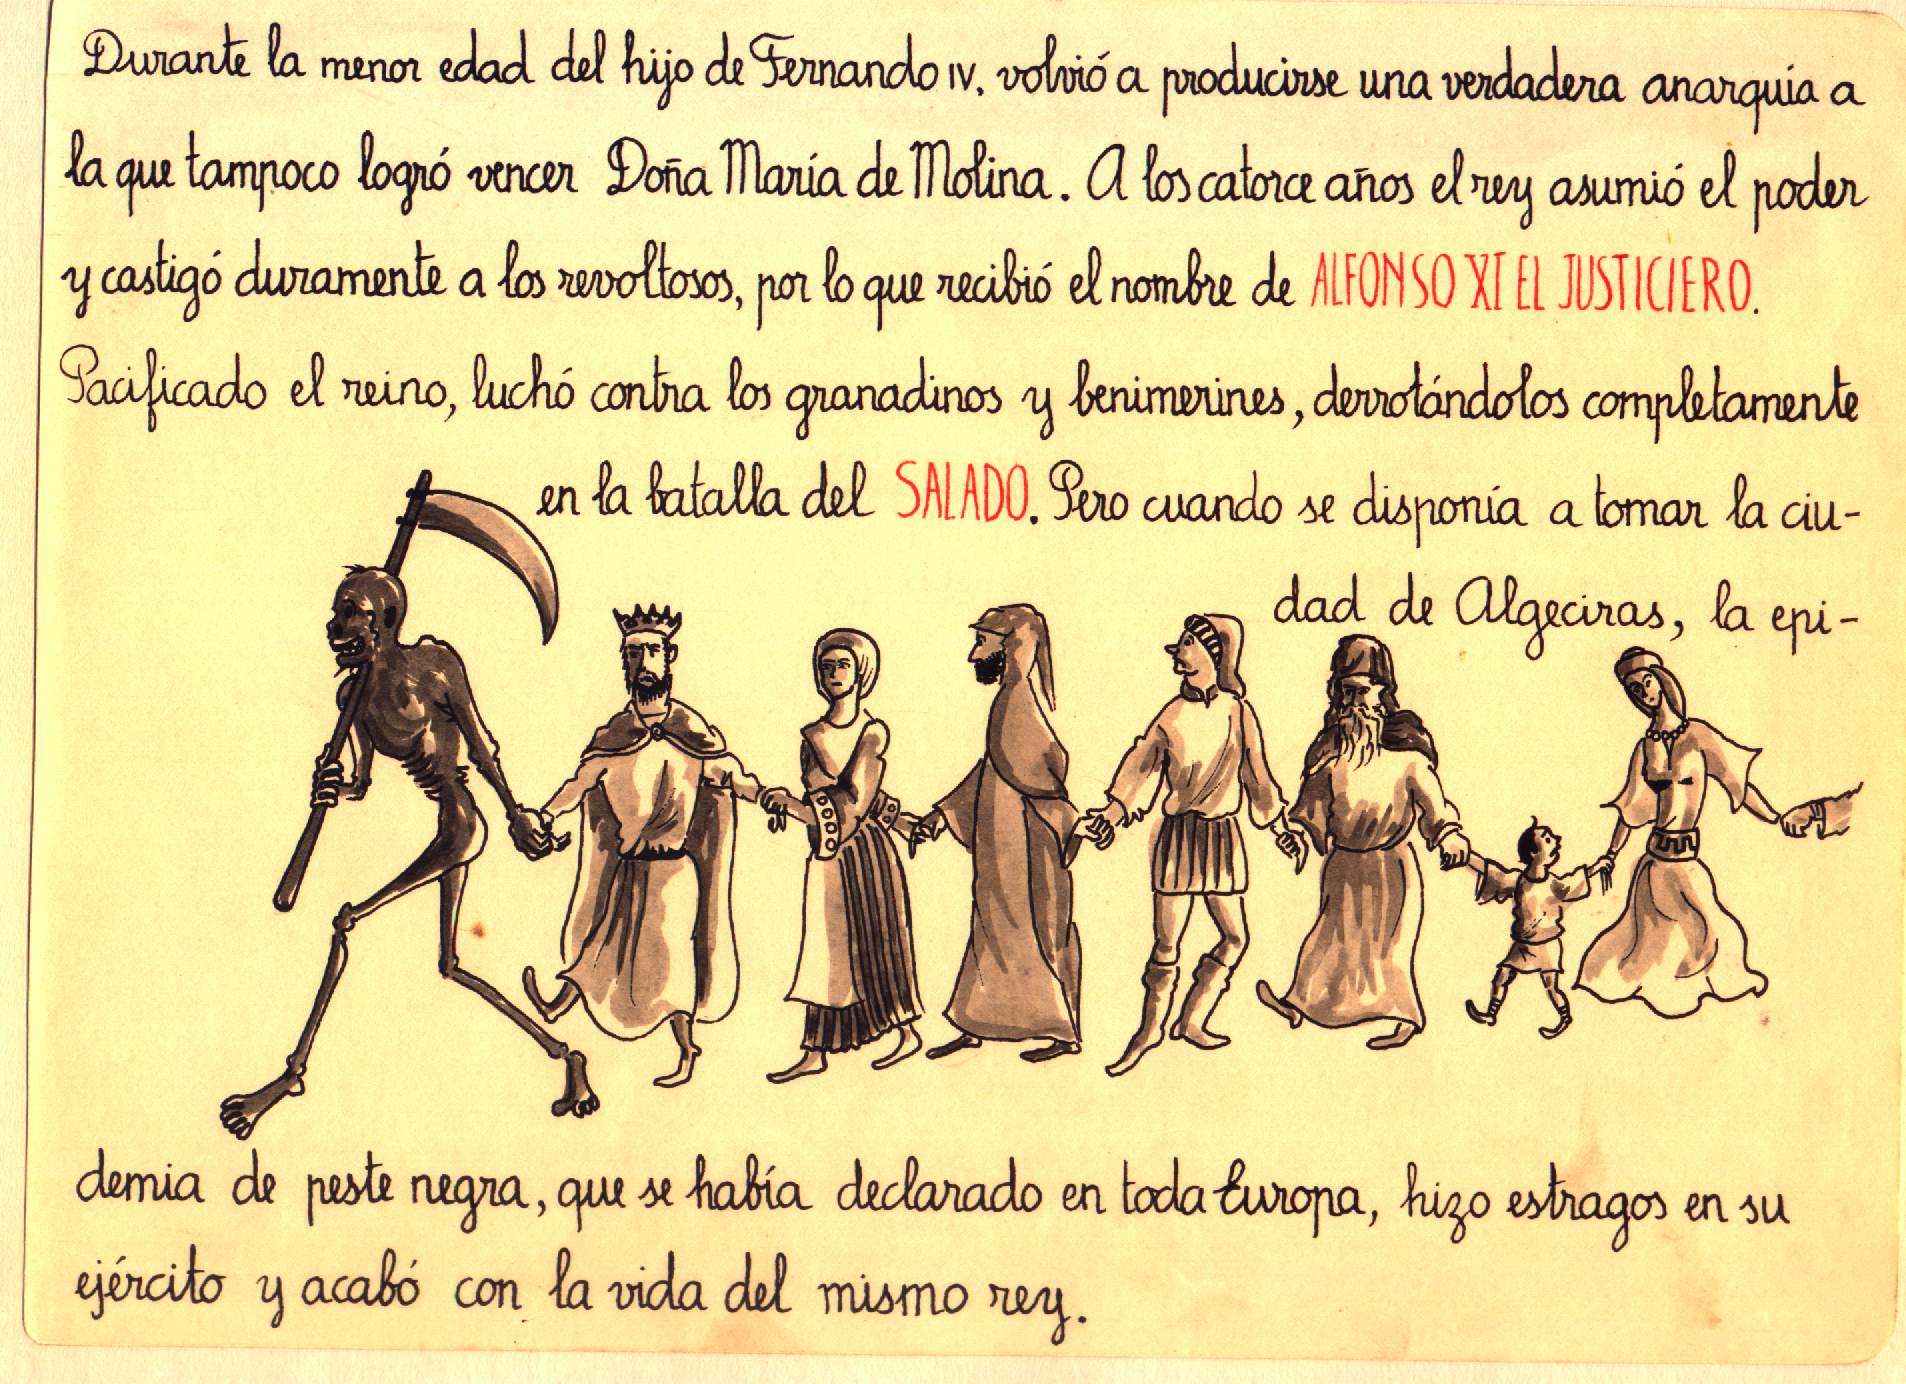 Durante la menor edad del hijo de Fernando IV. volvió a producirse una verdadera anarquía a
la que tampoco logró vencer Doña María de Molina. A los catorce años el rey asumió el poder
y castigó duramente a los revoltosos, por lo que recibió el nombre de ALFONSO XI EL JUSTICIERO.
Pacificado el reino, luchó contra los granadinos y benimerines, derrotándolos completamente
en la batalla del SALADO. Pero cuando se disponía a tomar la ciu-
dad de Algeciras, la epi-
demia de peste negra, que se había declarado en toda Europa, hizo estragos en su
ejército y acabó con la vida del mismo rey.